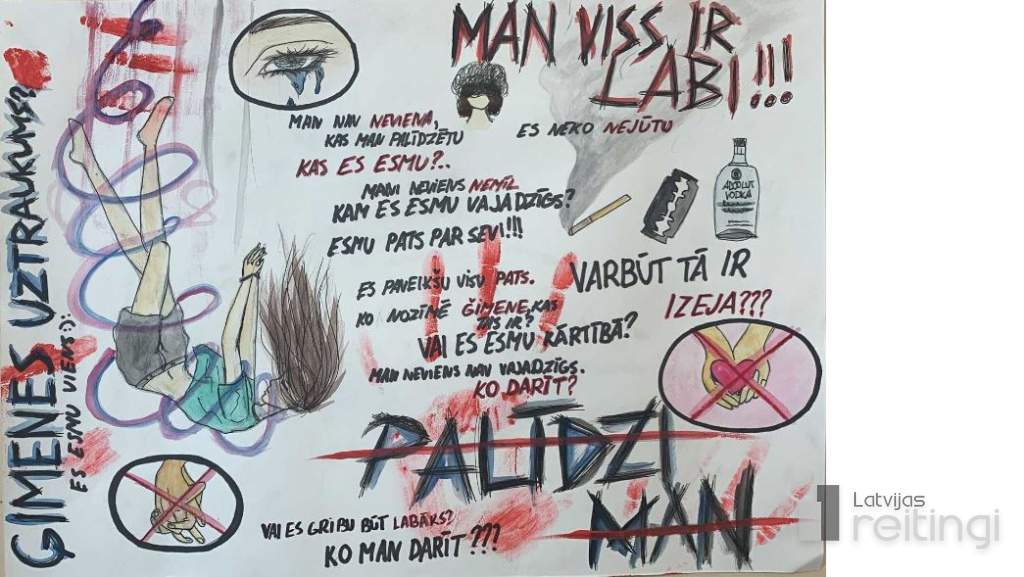 MAN VISS IR
LABI!!!
MAN NAV NEVIENA,
KAS MAN PALĪDZĒTU
ES NEKO NEJŪTU
KAS ES ESMU?..
MANI NEVIENS NEMĪL
KAM ES ESMU VAJADZĪGS?
ESMU PATS PAR SEVI!!!
ABSOLUT
VODKA
ES PAVEIKŠU VISU PATS.
VARBŪT TĀ IR
IZEJA???
KO NOZĪMĒ ĢIMENE, KAS
TAS IR?
VAI ES ESMU KĀRTĪBĀ?
MAN NEVIENS NAV VAJADZĪGS.
KO DARĪT?
PALĪDZI
MAN
VAI ES GRIBU BŪT LABĀKS?
KO MAN DARĪT???
ĢIMENES UZTRAUKUMS?
ES ESMU VIENS):
1 Latvijas
reitingi